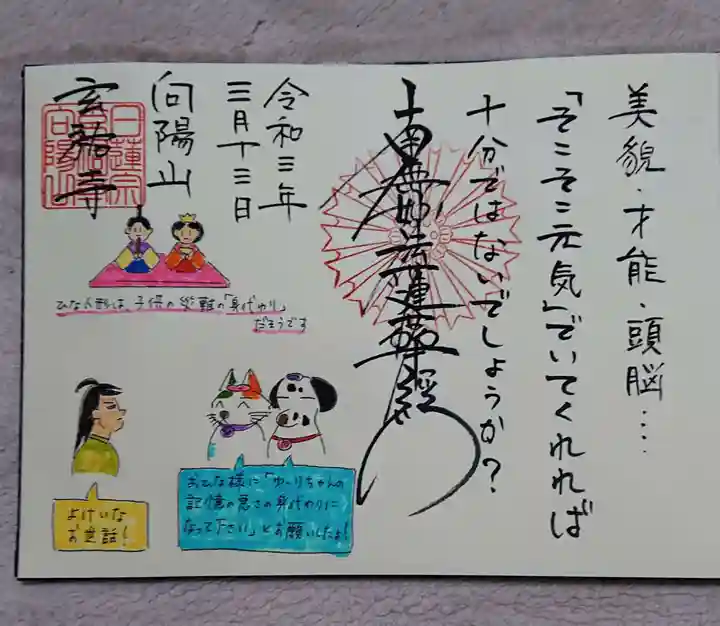 美貌・才能・頭脳…
「そこそこ元気」でいてくれれば
十分ではないでしょうか?
南無妙法蓮華経
令和三年
三月十三日
向陽山
玄祐寺
日蓮宗
向陽山
ひな人形は、子供の災難の「身代わり」
だそうです
よけいな
お世話!
おひな様に「ゆーりちゃんの
記憶の悪さの身代わりに
なって下さい」とお願いしたよ!